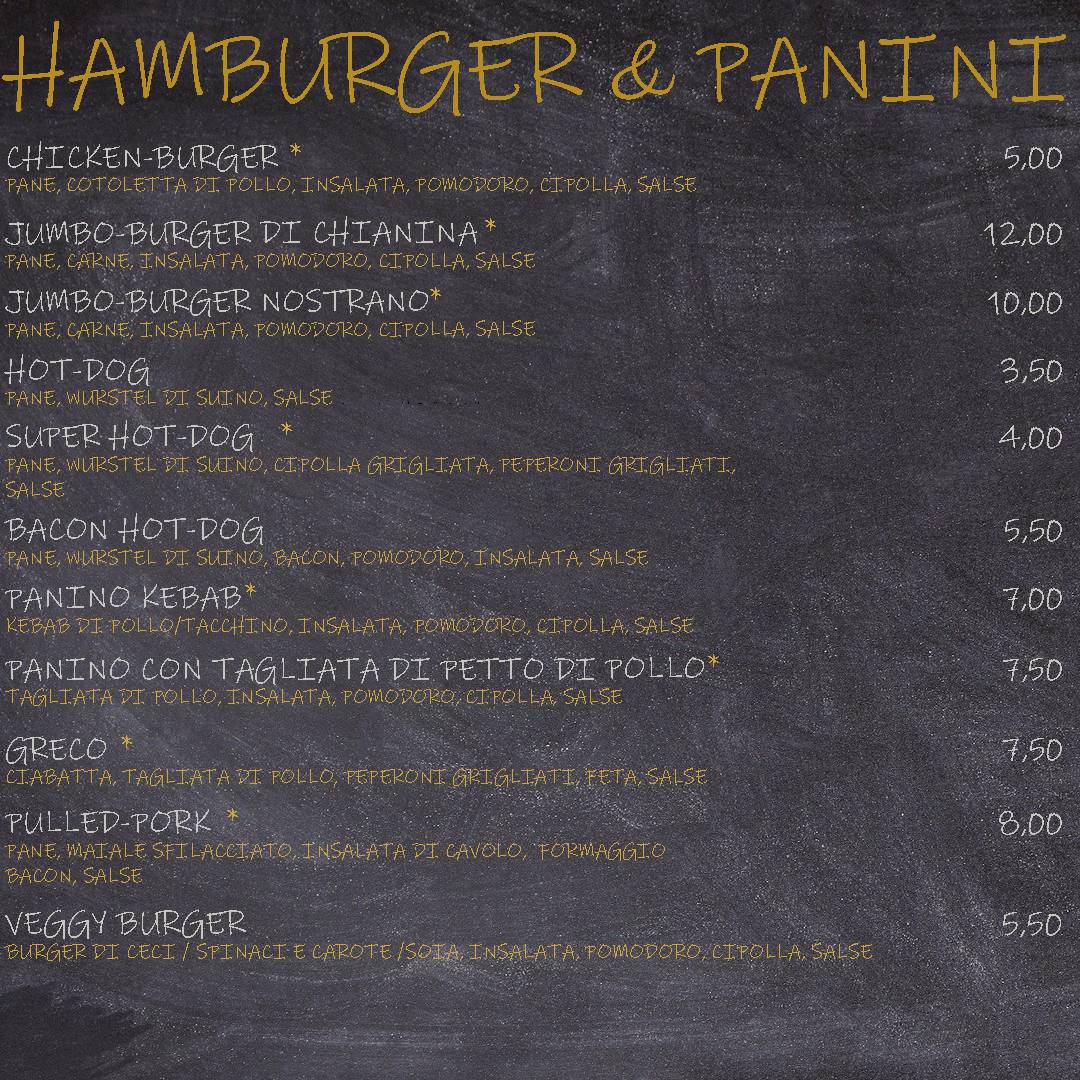 HAMBURGER & PANINI
CHICKEN-BURGER * 5,00
PANE, COTOLETTA DI POLLO, INSALATA, POMODORO, CIPOLLA, SALSE
JUMBO-BURGER DI CHIANINA* 12,00
PANE, CARNE, INSALATA, POMODORO, CIPOLLA, SALSE
JUMBO-BURGER NOSTRANO* 10,00
PANE, CARNE, INSALATA, POMODORO, CIPOLLA, SALSE
HOT-DOG 3,50
PANE, WURSTEL DI SUINO, SALSE
SUPER HOT-DOG * 4,00
PANE, WURSTEL DI SUINO, CIPOLLA GRIGLIATA, PEPERONI GRIGLIATI,
SALSE
BACON HOT-DOG 5,50
PANE, WURSTEL DI SUINO, BACON, POMODORO, INSALATA, SALSE
PANINO KEBAB* 7,00
KEBAB DI POLLO/TACCHINO, INSALATA, POMODORO, CIPOLLA, SALSE
PANINO CON TAGLIATA DI PETTO DI POLLO* 7,50
TAGLIATA DI POLLO, INSALATA, POMODORO, CIPOLLA, SALSE
GRECO * 7,50
CIABATTA, TAGLIATA DI POLLO, PEPERONI GRIGLIATI, FETA, SALSE
PULLED-PORK * 8,00
PANE, MAIALE SFILACCIATO, INSALATA DI CAVOLO, FORMAGGIO
BACON, SALSE
VEGGY BURGER 5,50
BURGER DI CECI / SPINACI E CAROTE /SOIA, INSALATA, POMODORO, CIPOLLA, SALSE